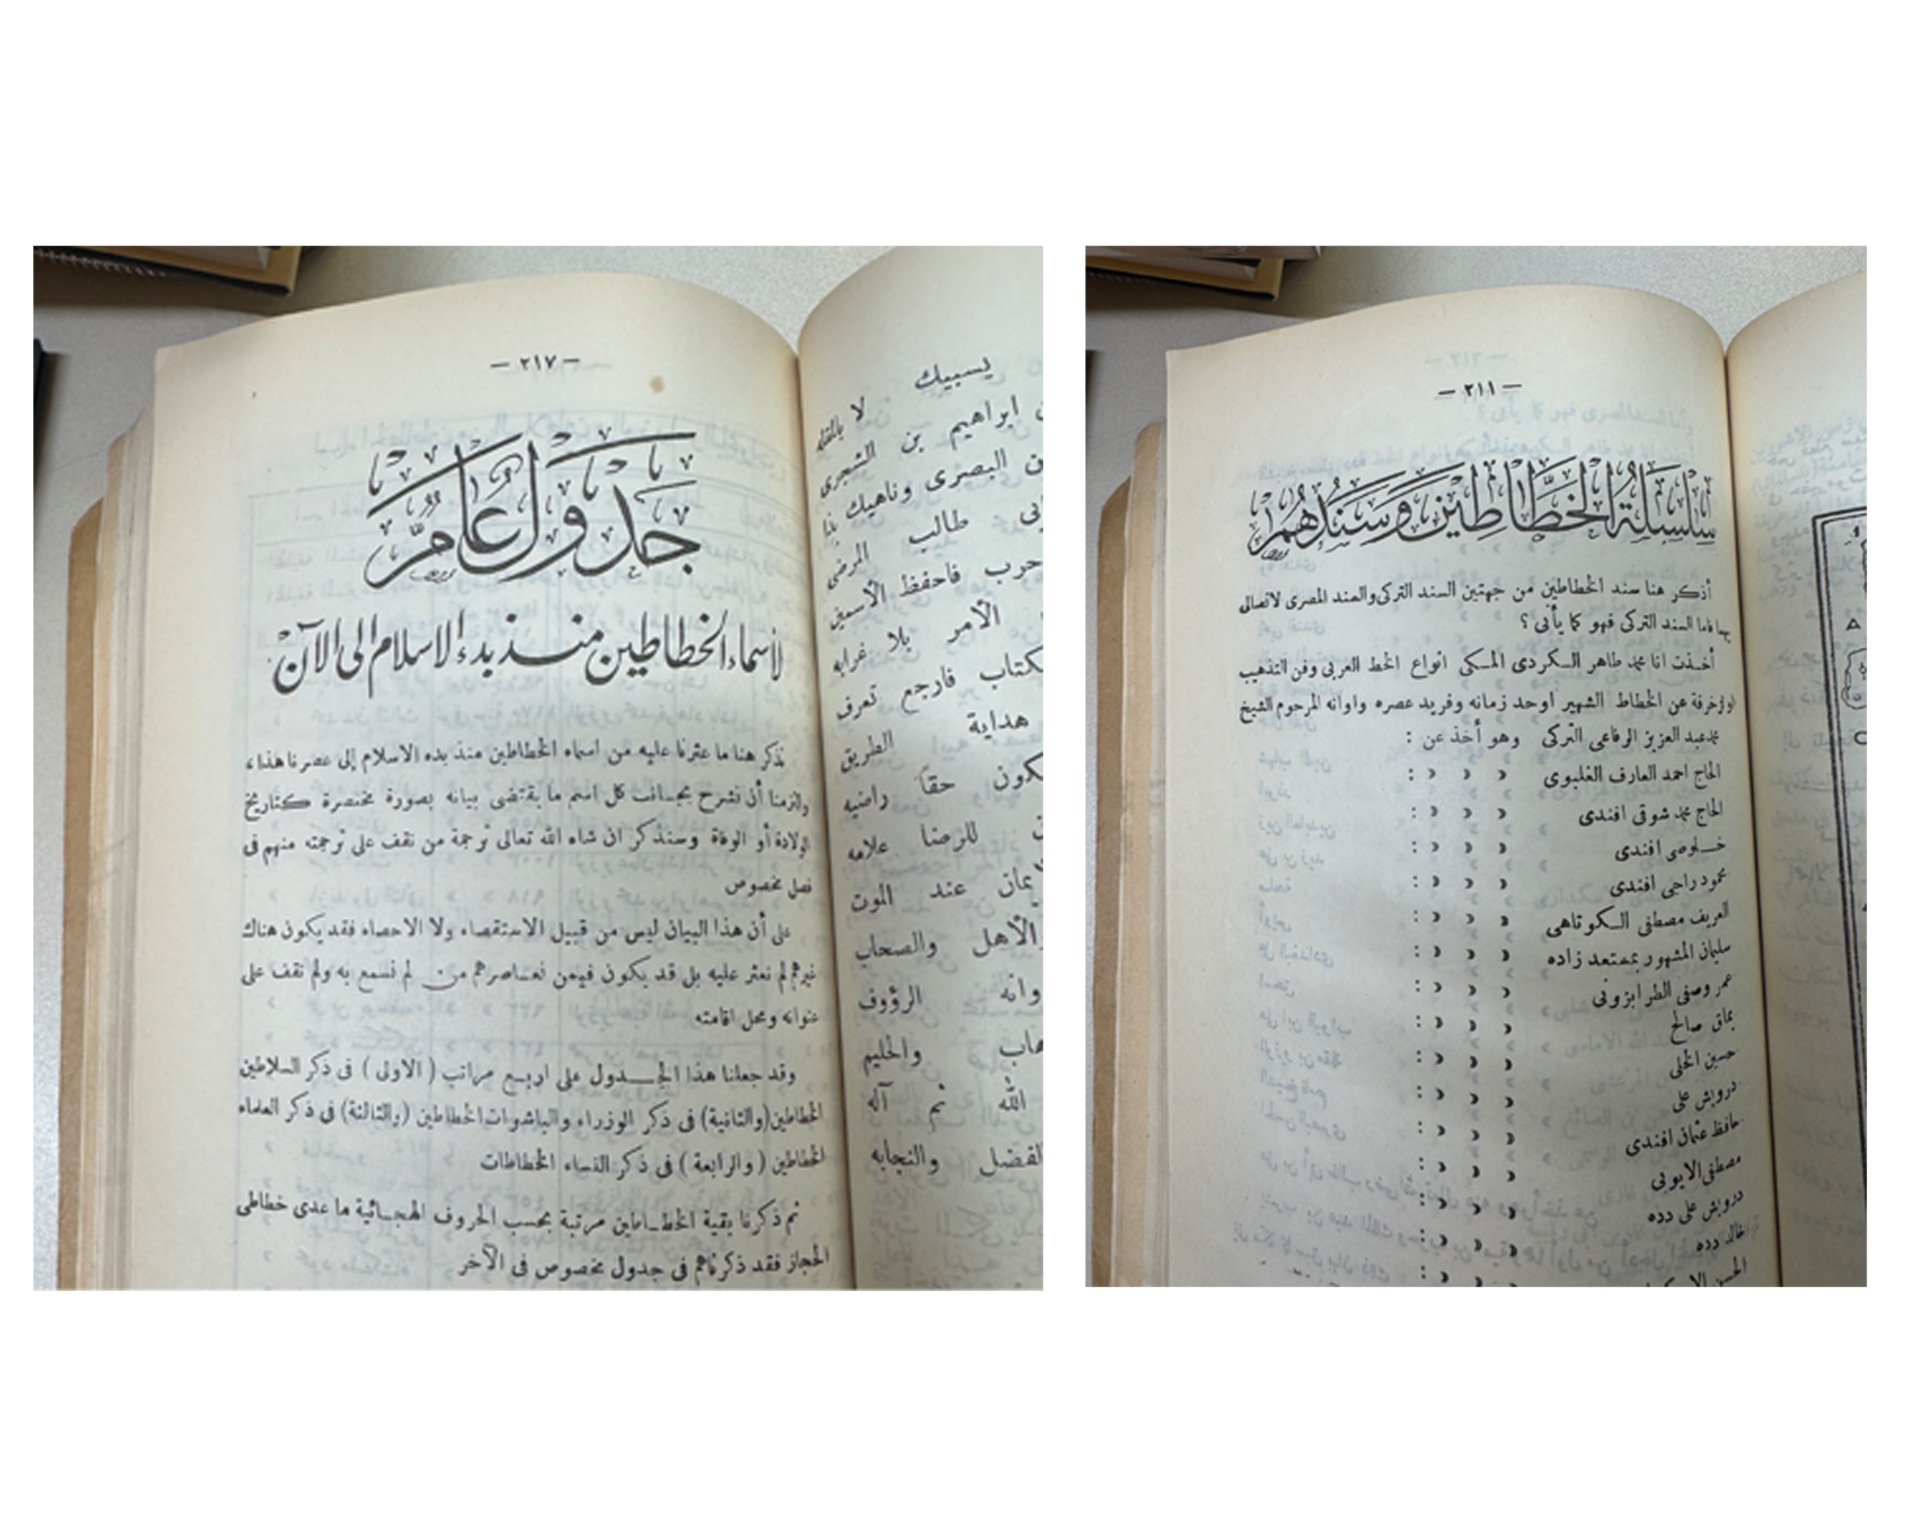 — ٢١٧ —
جدول عام
لأسماء الخطاطين منذ بدء الاسلام الى الآن
نذكر هنا ما عثرنا عليه من اسماء الخطاطين منذ بدء الاسلام إلى عصرنا هذا،
والتزمنا أن نشرح بجانب كل اسم ما يقتضى بيانه بصورة مختصرة كتاريخ
الولادة أو الوفاة وسنذكر ان شاء الله تعالى ترجمة من نقف على ترجمته منهم فى
فصل مخصوص
على أن هذا البيان ليس من قبيل الاستقصاء ولا الاحصاء فقد يكون هناك
غيرهم لم نعثر عليه بل قد يكون فيمن نعاصرهم من لم نسمع به ولم نقف على
عنوانه ومحل اقامته
وقد جعلنا هذا الجدول على اربع مراتب ( الاولى ) فى ذكر السلاطين
الخطاطين (والثانية) فى ذكر الوزراء والباشوات الخطاطين (والثالثة) فى ذكر العلماء
الخطاطين ( والرابعة ) فى ذكر النساء الخطاطات
ثم ذكرنا بقية الخطاطين مرتبة بحسب الحروف الهجائية ما عدى خطاطى
الحجاز فقد ذكرناهم فى جدول مخصوص فى الآخر
يسبيك
لا بالمقله
ابراهيم بن الشجرى
البصرى وناهيك بذا
طالب المرضى
حرب فاحفظ الأسمين
الأمر بلا غرابه
فارجع تعرف
هداية الطريق
حقاً راضيه
للرضا علامه
عند الموت
والصحاب
الرؤوف
والحليم
الله ثم آله
والنجابه
— ٢١١ —
سلسلة الخطاطين وسندهم
أذكر هنا سند الخطاطين من جهتين السند التركى والسند المصرى لاتصالى
بهما فاما السند التركى فهو كما يأتى ؟
أخذت انا محمد طاهر الكردى المكى انواع الخط العربى وفن التذهيب
والزخرفة عن الخطاط الشهير اوحد زمانه وفريد عصره واوانه المرحوم الشيخ
محمد عبد العزيز الرفاعى التركى وهو أخذ عن :
الحاج احمد العارف الفلبوى » » » » :
الحاج محمد شوقى افندى » » » » :
خلوصى افندى » » » » :
محمود راجى افندى » » » » :
العريف مصطفى الكوتاهى » » » » :
سليمان المشهور بمعتمد زاده » » » » :
عمر وصفى الطرابزونى » » » » :
بماق صالح » » » :
حسين الحلى » » » :
درويش على » » » :
حافظ عثمان افندى » » » :
مصطفى الايوبى » » » :
درويش على دده » » » :
خالد دده » » » :